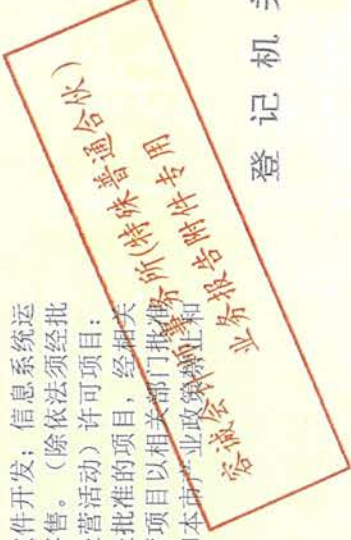 件开发；信息系统运
售。（除依法须经批
营活动）许可项目：
批准的项目，经相关
项目以相关部门批准
本市产业政策禁止和
登记机
容诚会计师事务所(特殊普通合伙)
业务报告附件专用